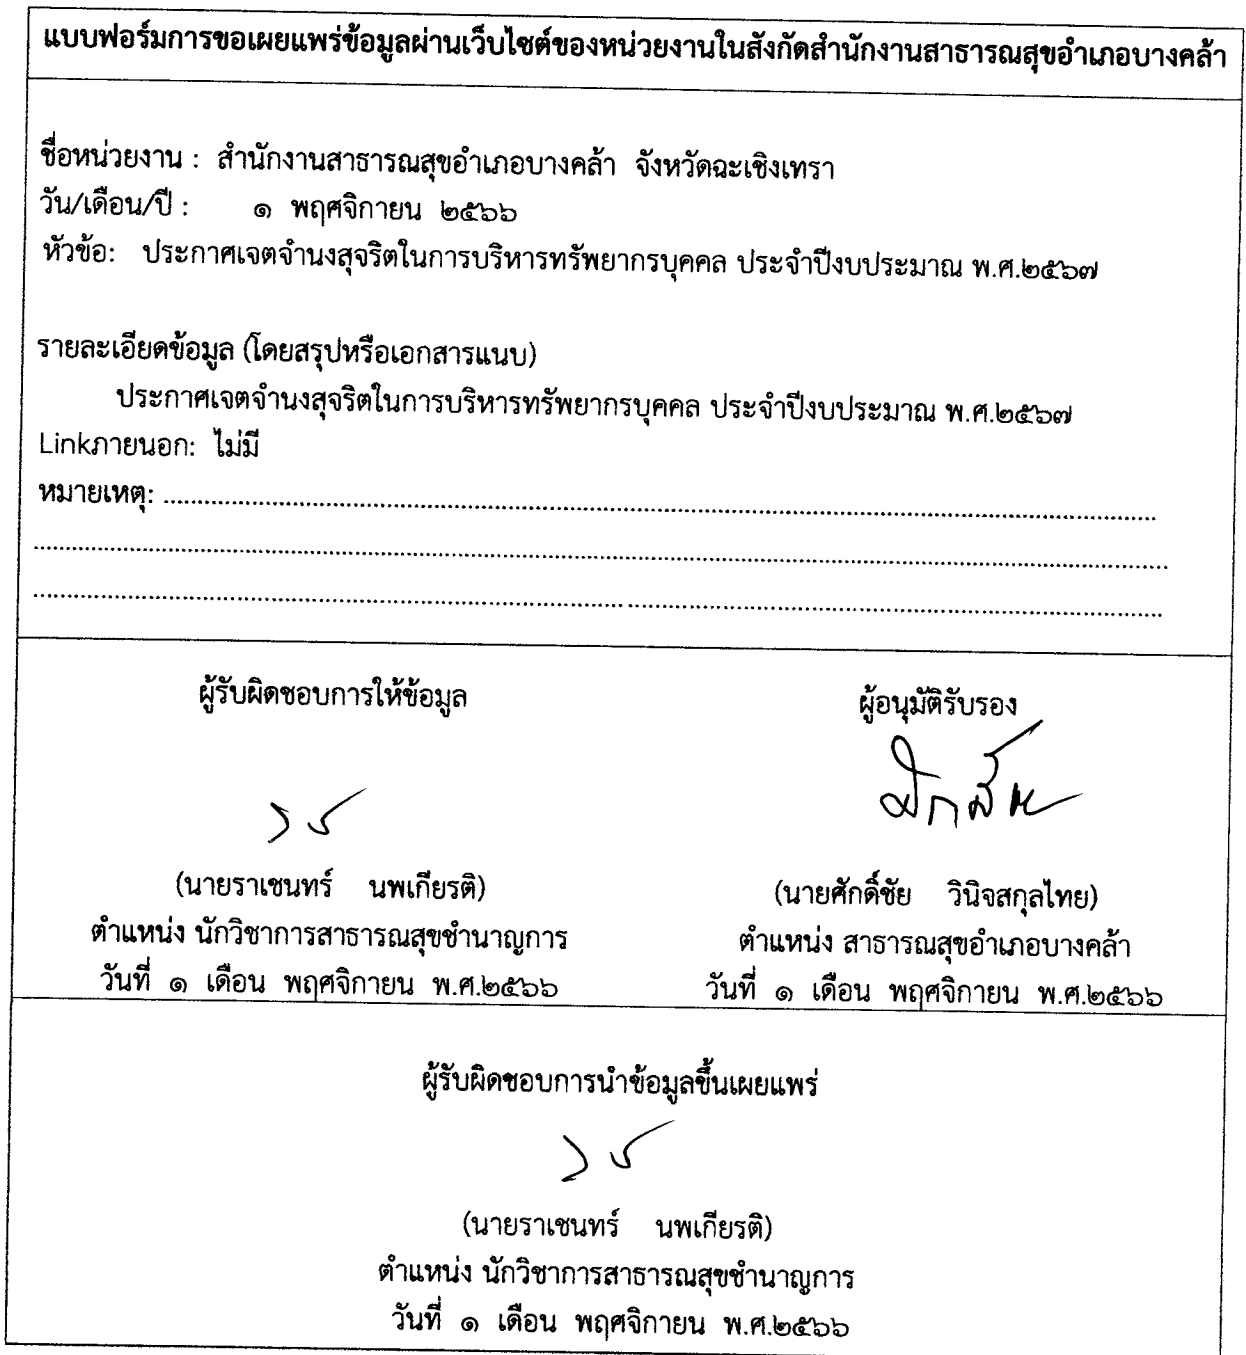 แบบฟอร์มการขอเผยแพร่ข้อมูลผ่านเว็บไซต์ของหน่วยงานในสังกัดสำนักงานสาธารณสุขอำเภอบางคล้า
ชื่อหน่วยงาน : สำนักงานสาธารณสุขอำเภอบางคล้า จังหวัดฉะเชิงเทรา
วัน/เดือน/ปี : ๑ พฤศจิกายน ๒๕๖๖
หัวข้อ: ประกาศเจตจำนงสุจริตในการบริหารทรัพยากรบุคคล ประจำปีงบประมาณ พ.ศ.๒๕๖๗
รายละเอียดข้อมูล (โดยสรุปหรือเอกสารแนบ)
ประกาศเจตจำนงสุจริตในการบริหารทรัพยากรบุคคล ประจำปีงบประมาณ พ.ศ.๒๕๖๗
Linkภายนอก: ไม่มี
หมายเหตุ: ........................................................................
........................................................................
........................................................................
ผู้รับผิดชอบการให้ข้อมูล
(นายราเชนทร์ นพเกียรติ)
ตำแหน่ง นักวิชาการสาธารณสุขชำนาญการ
วันที่ ๑ เดือน พฤศจิกายน พ.ศ.๒๕๖๖
ผู้อนุมัติรับรอง
(นายศักดิ์ชัย วินิจสกุลไทย)
ตำแหน่ง สาธารณสุขอำเภอบางคล้า
วันที่ ๑ เดือน พฤศจิกายน พ.ศ.๒๕๖๖
ผู้รับผิดชอบการนำข้อมูลขึ้นเผยแพร่
(นายราเชนทร์ นพเกียรติ)
ตำแหน่ง นักวิชาการสาธารณสุขชำนาญการ
วันที่ ๑ เดือน พฤศจิกายน พ.ศ.๒๕๖๖